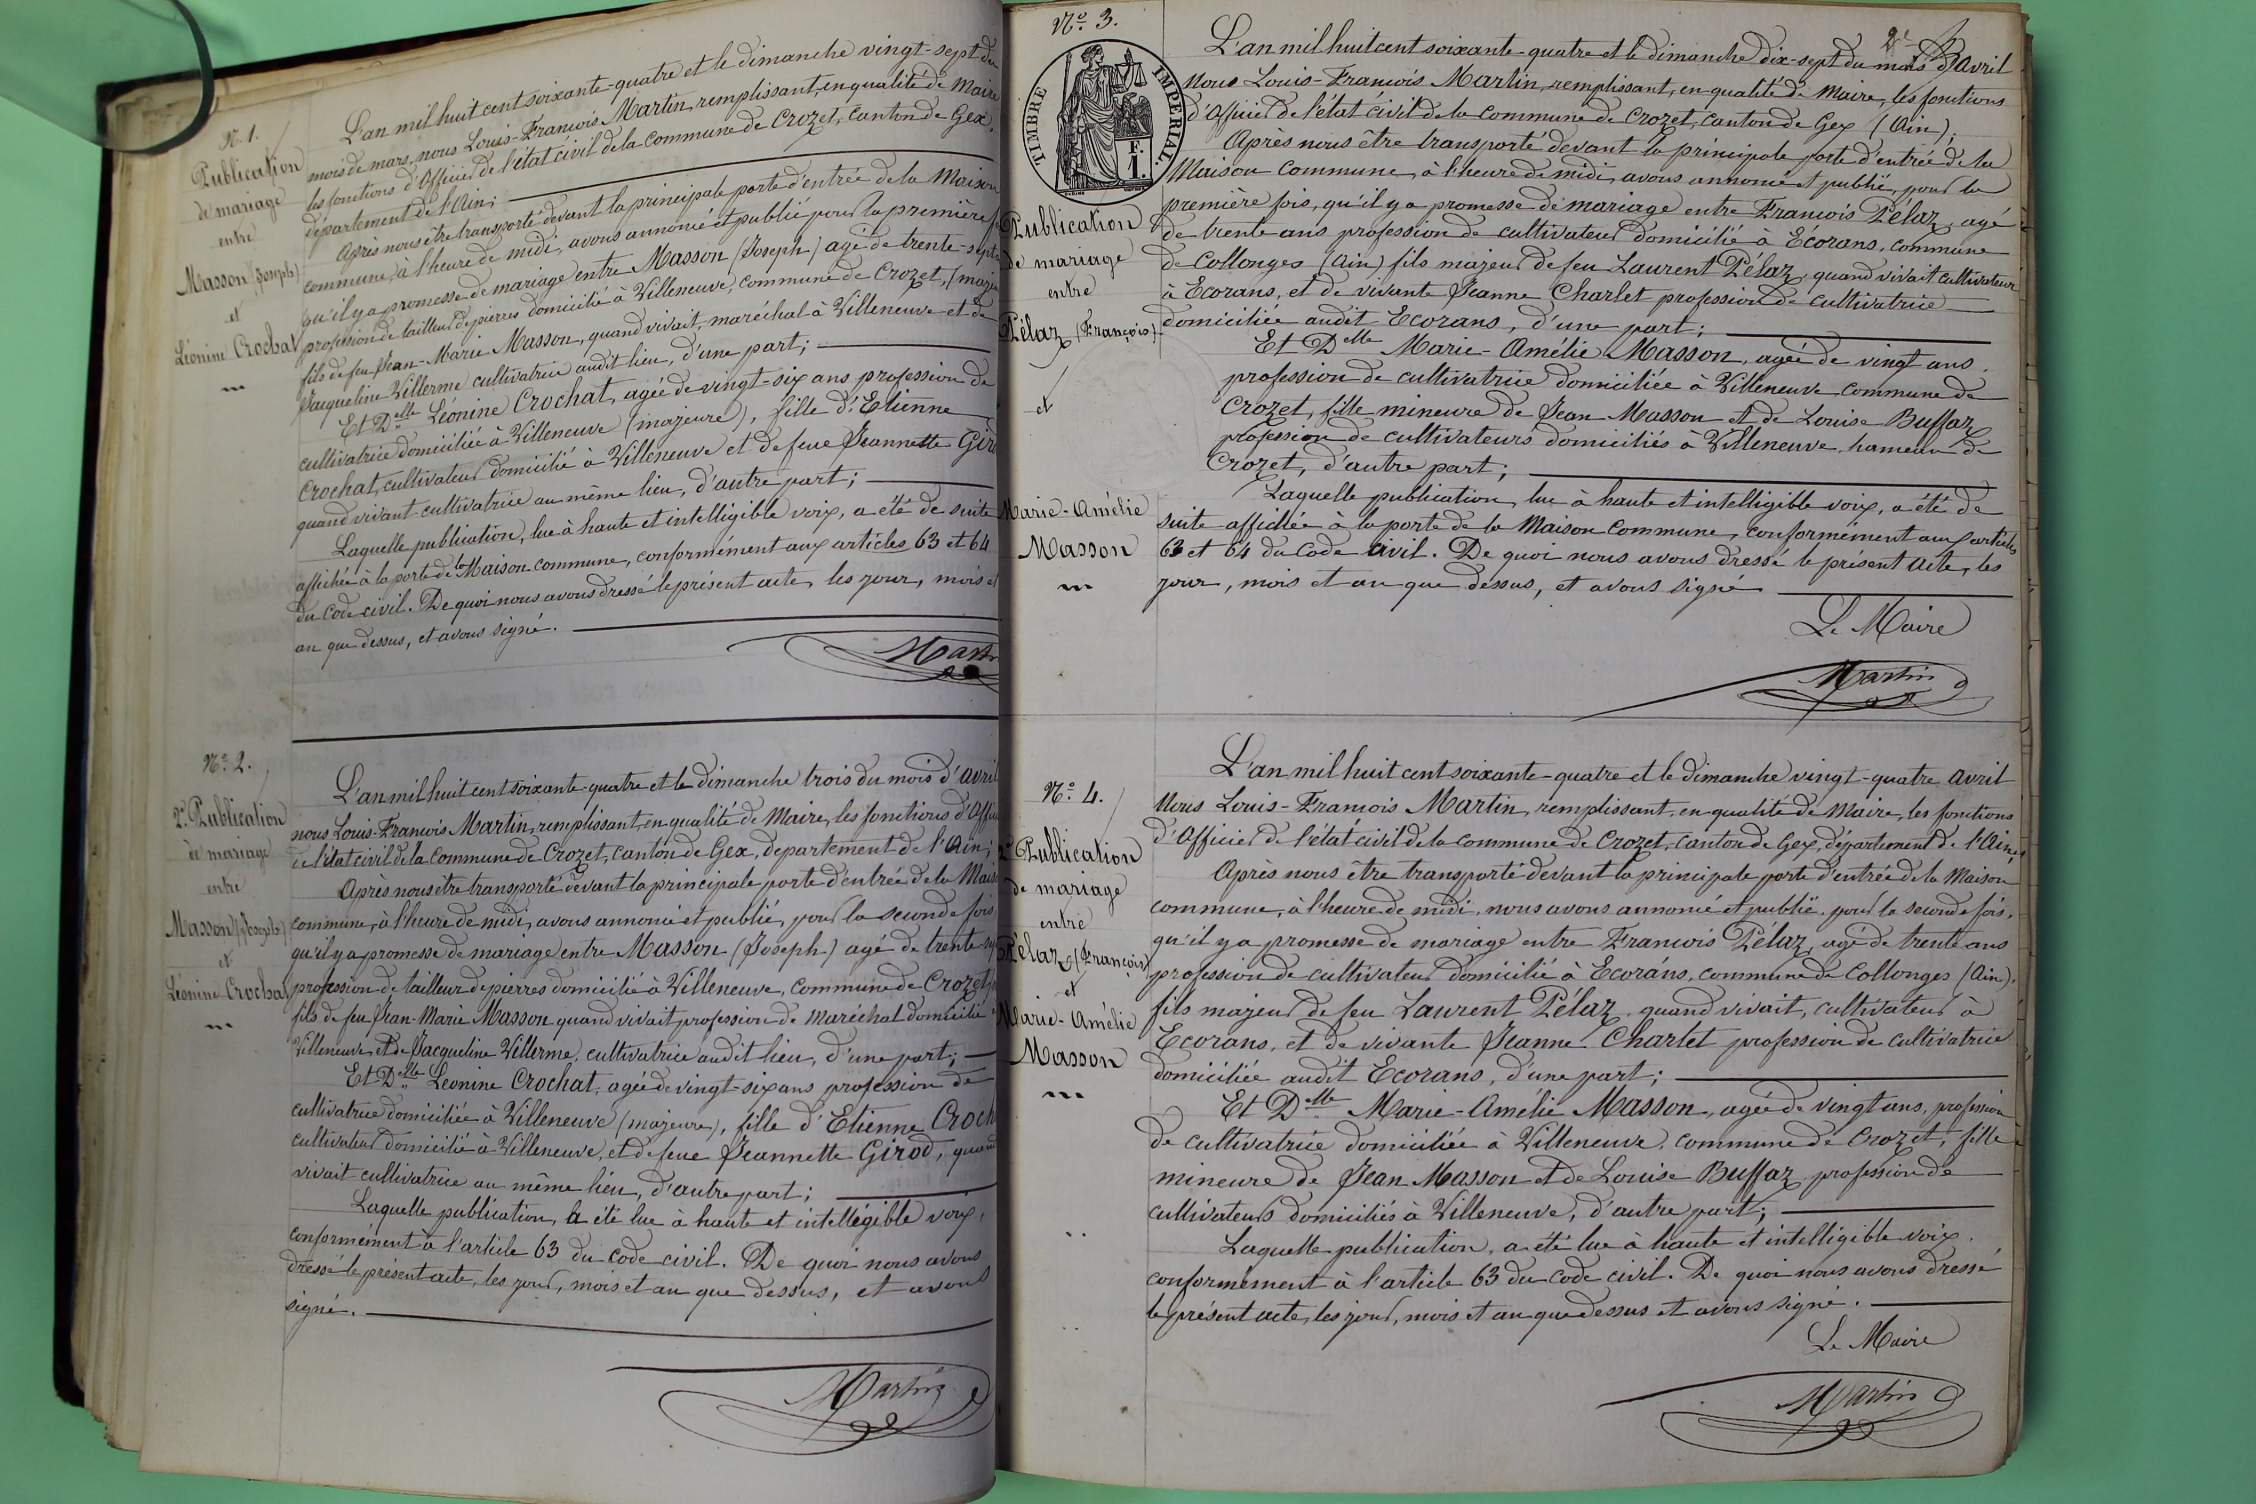 N. 1.
Publication
de mariage
entre
Masson (Joseph)
et
Léonine Crochat
L'an mil huit cent soixante-quatre et le dimanche vingt-sept du
mois de mars, nous Louis-François Martin, remplissant, en qualité de Maire
les fonctions d'Officier de l'état civil de la commune de Crozet, canton de Gex,
département de l'Ain;
Après nous être transporté devant la principale porte d'entrée de la Maison
commune, à l'heure de midi, avons annoncé et publié pour la première
qu'il y a promesse de mariage entre Masson (Joseph) agé de trente-sept
profession de tailleur de pierres domicilié à Villeneuve, commune de Crozet, (maj
fils de feu Jean-Marie Masson, quand vivait, maréchal à Villeneuve et de
Jacqueline Villerme cultivatrice audit lieu, d'une part;
Et Delle Léonine Crochat, agée de vingt-six ans profession de
cultivatrice domiciliée à Villeneuve (majeure), fille d'Etienne
Crochat, cultivateur domicilié à Villeneuve et de feue Jeannette Giro
quand vivant cultivatrice au même lieu, d'autre part;
Laquelle publication, lue à haute et intelligible voix, a été de suite
affichée à la porte de la Maison commune, conformément aux articles 63 et 64
du Code civil. De quoi nous avons dressé le présent acte, les jour, mois et
an que dessus, et avons signé.
Martin
N.o 2.
2e Publication
de mariage
entre
Masson (Joseph)
et
Léonine Crochat
L'an mil huit cent soixante-quatre et le dimanche trois du mois d'avril
nous Louis-François Martin, remplissant, en qualité de Maire, les fonctions d'Offi
de l'état civil de la commune de Crozet, canton de Gex, département de l'Ain;
Après nous être transporté devant la principale porte d'entrée de la Mais
commune, à l'heure de midi, avons annoncé et publié, pour la seconde fois,
qu'il y a promesse de mariage entre Masson (Joseph) agé de trente-
profession de tailleur de pierres domicilié à Villeneuve, commune de Crozet,
fils de feu Jean-Marie Masson quand vivait profession de maréchal domicilié
Villeneuve, et de Jacqueline Villerme, cultivatrice audit lieu, d'une part;
Et Delle Léonine Crochat, agée de vingt-six ans profession de
cultivatrice domiciliée à Villeneuve (majeure), fille d'Etienne Croch
cultivateur domicilié à Villeneuve, et de feue Jeannette Girod, quand
vivait cultivatrice au même lieu, d'autre part;
Laquelle publication, a été lue à haute et intelligible voix,
conformément à l'article 63 du code civil. De quoi nous avons
dressé le présent acte, les jour, mois et an que dessus, et avons
signé.
Martin
2e
N.o 3.
TIMBRE IMPERIAL.
F.
1.
Publication
de mariage
entre
Pélaz (François)
et
Marie-Amélie
Masson
L'an mil huit cent soixante-quatre et le dimanche dix-sept du mois d'Avril
Nous Louis-François Martin, remplissant, en qualité de Maire, les fonctions
d'Officier de l'état civil de la commune de Crozet, canton de Gex (Ain);
Après nous être transporté devant la principale porte d'entrée de la
Maison commune, à l'heure de midi, avons annoncé et publié, pour la
première fois, qu'il y a promesse de mariage entre François Pélaz, agé
de trente ans profession de cultivateur domicilié à Ecorans, commune
de Collonges (Ain) fils majeur de feu Laurent Pélaz, quand vivait cultivateur
à Ecorans, et de vivante Jeanne Charlet profession de cultivatrice
domiciliée audit Ecorans, d'une part;
Et Delle Marie-Amélie Masson, agée de vingt ans,
profession de cultivatrice domiciliée à Villeneuve commune de
Crozet, fille mineure de Jean Masson et de Louise Buffaz
profession de cultivateurs domiciliés à Villeneuve, hameau de
Crozet, d'autre part;
Laquelle publication, lue à haute et intelligible voix, a été de
suite affichée à la porte de la Maison commune, conformément aux articles
63 et 64 du Code civil. De quoi nous avons dressé le présent acte, les
jour, mois et an que dessus, et avons signé
Le Maire
Martin
N.o 4.
2e Publication
de mariage
entre
Pélaz (François)
et
Marie-Amélie
Masson
L'an mil huit cent soixante-quatre et le dimanche vingt-quatre avril
Nous Louis-François Martin, remplissant, en qualité de Maire, les fonctions
d'Officier de l'état civil de la commune de Crozet, canton de Gex, département de l'Ain;
Après nous être transporté devant la principale porte d'entrée de la Maison
commune, à l'heure de midi, nous avons annoncé et publié, pour la seconde fois,
qu'il y a promesse de mariage entre François Pélaz, agé de trente ans
profession de cultivateur domicilié à Ecorans, commune de Collonges (Ain),
fils majeur de feu Laurent Pélaz, quand vivait, cultivateur à
Ecorans, et de vivante Jeanne Charlet profession de cultivatrice
domiciliée audit Ecorans, d'une part;
Et Delle Marie-Amélie Masson, agée de vingt ans, profession
de cultivatrice domiciliée à Villeneuve, commune de Crozet, fille
mineure de Jean Masson et de Louise Buffaz profession de
cultivateurs domiciliés à Villeneuve, d'autre part;
Laquelle publication, a été lue à haute et intelligible voix,
conformément à l'article 63 du code civil. De quoi nous avons dressé
le présent acte, les jour, mois et an que dessus et avons signé.
Le Maire
Martin